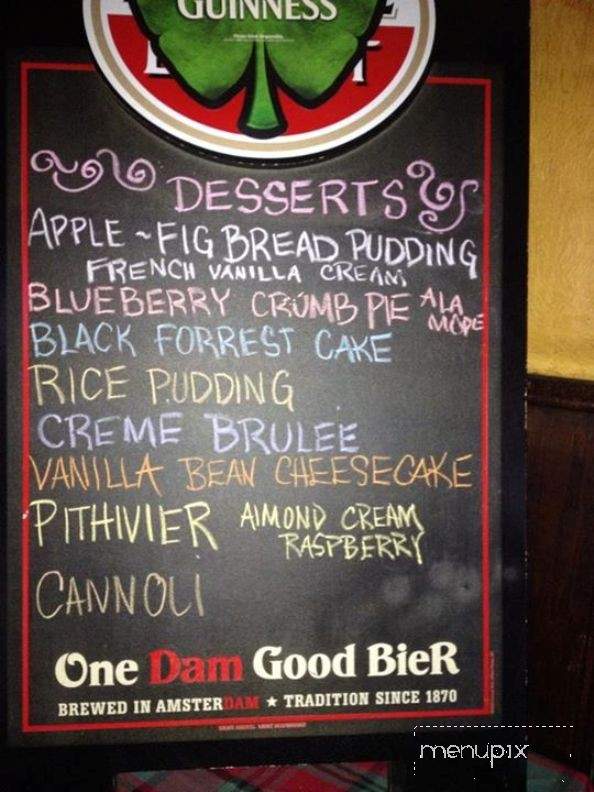 GUINNESS
DESSERTS
APPLE ~ FIG BREAD PUDDING
FRENCH VANILLA CREAM
BLUEBERRY CRUMB PIE ALA
MODE
BLACK FORREST CAKE
RICE PUDDING
CREME BRULEE
VANILLA BEAN CHEESECAKE
PITHIVIER ALMOND CREAM
RASPBERRY
CANNOLI
One Dam Good BieR
BREWED IN AMSTERDAM ★ TRADITION SINCE 1870
menupix